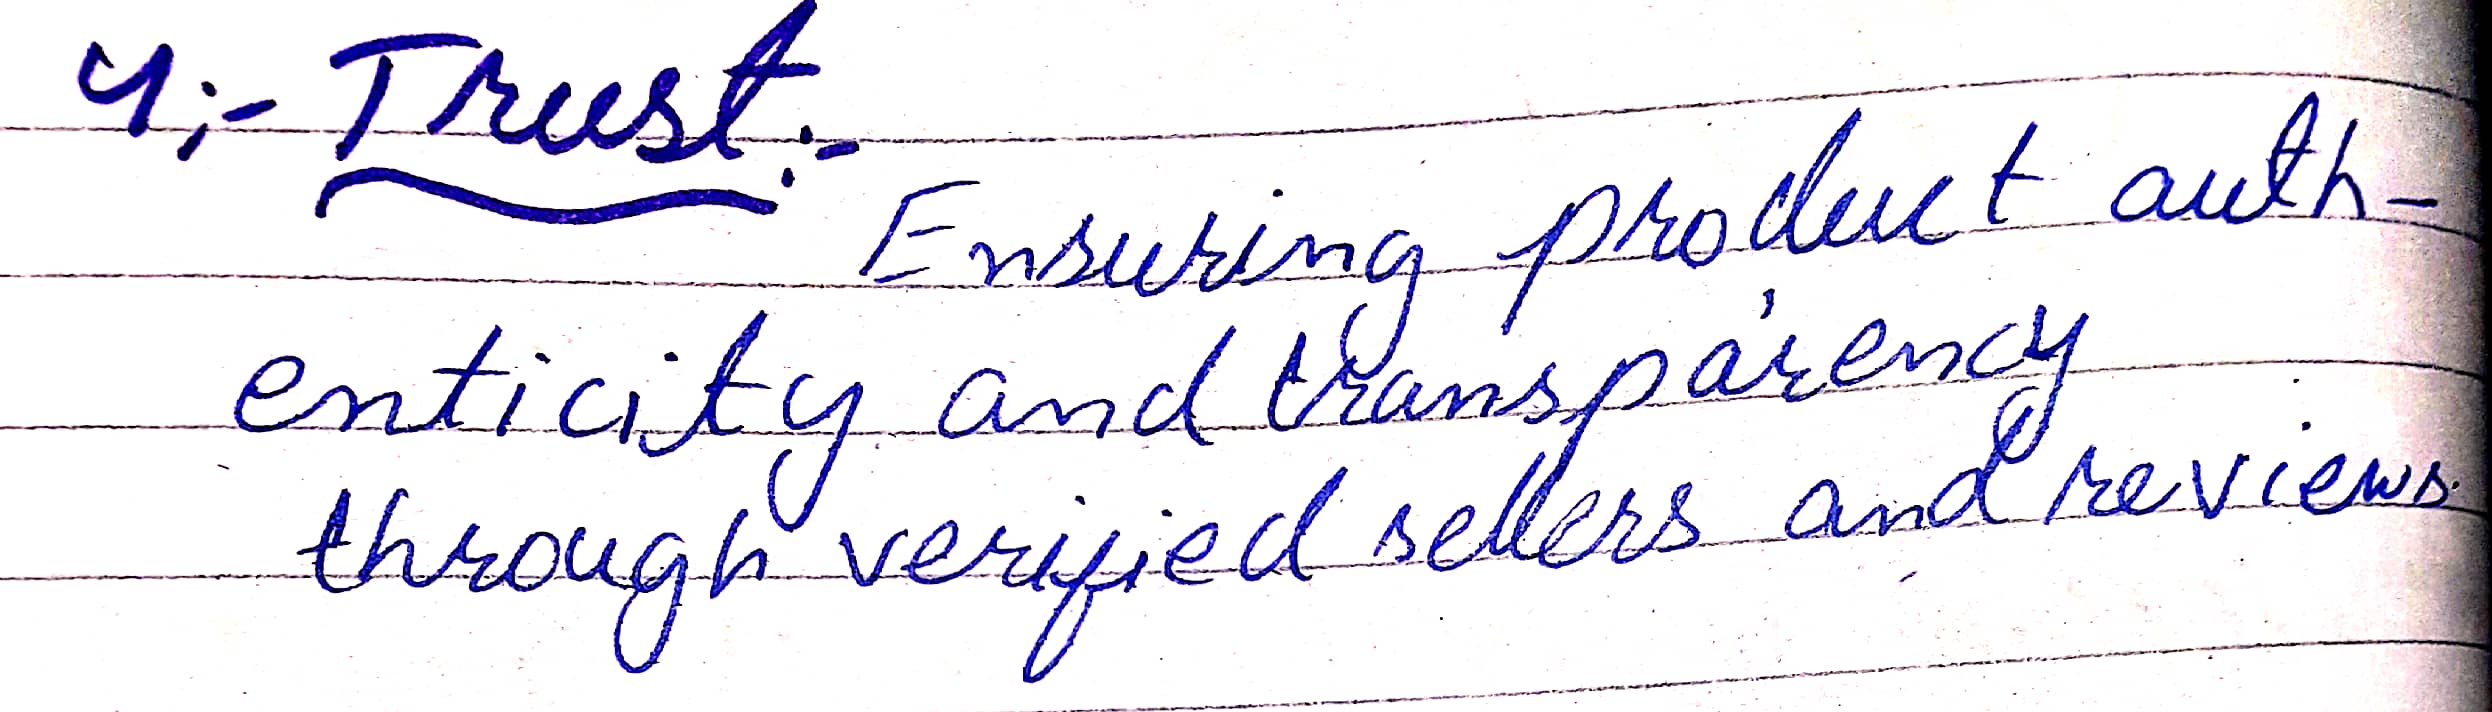 4:- Trust:-
Ensuring product auth-
enticity and transparency
through verified sellers and reviews.